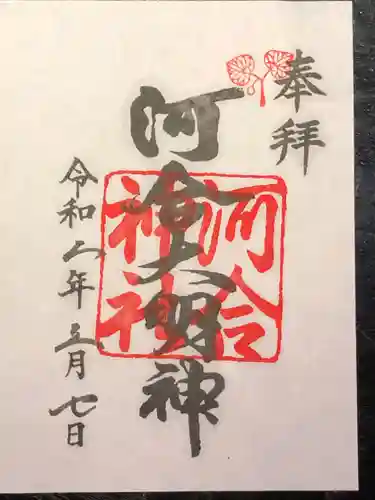 奉拝
河合大明神
河合
神社
令和二年三月七日